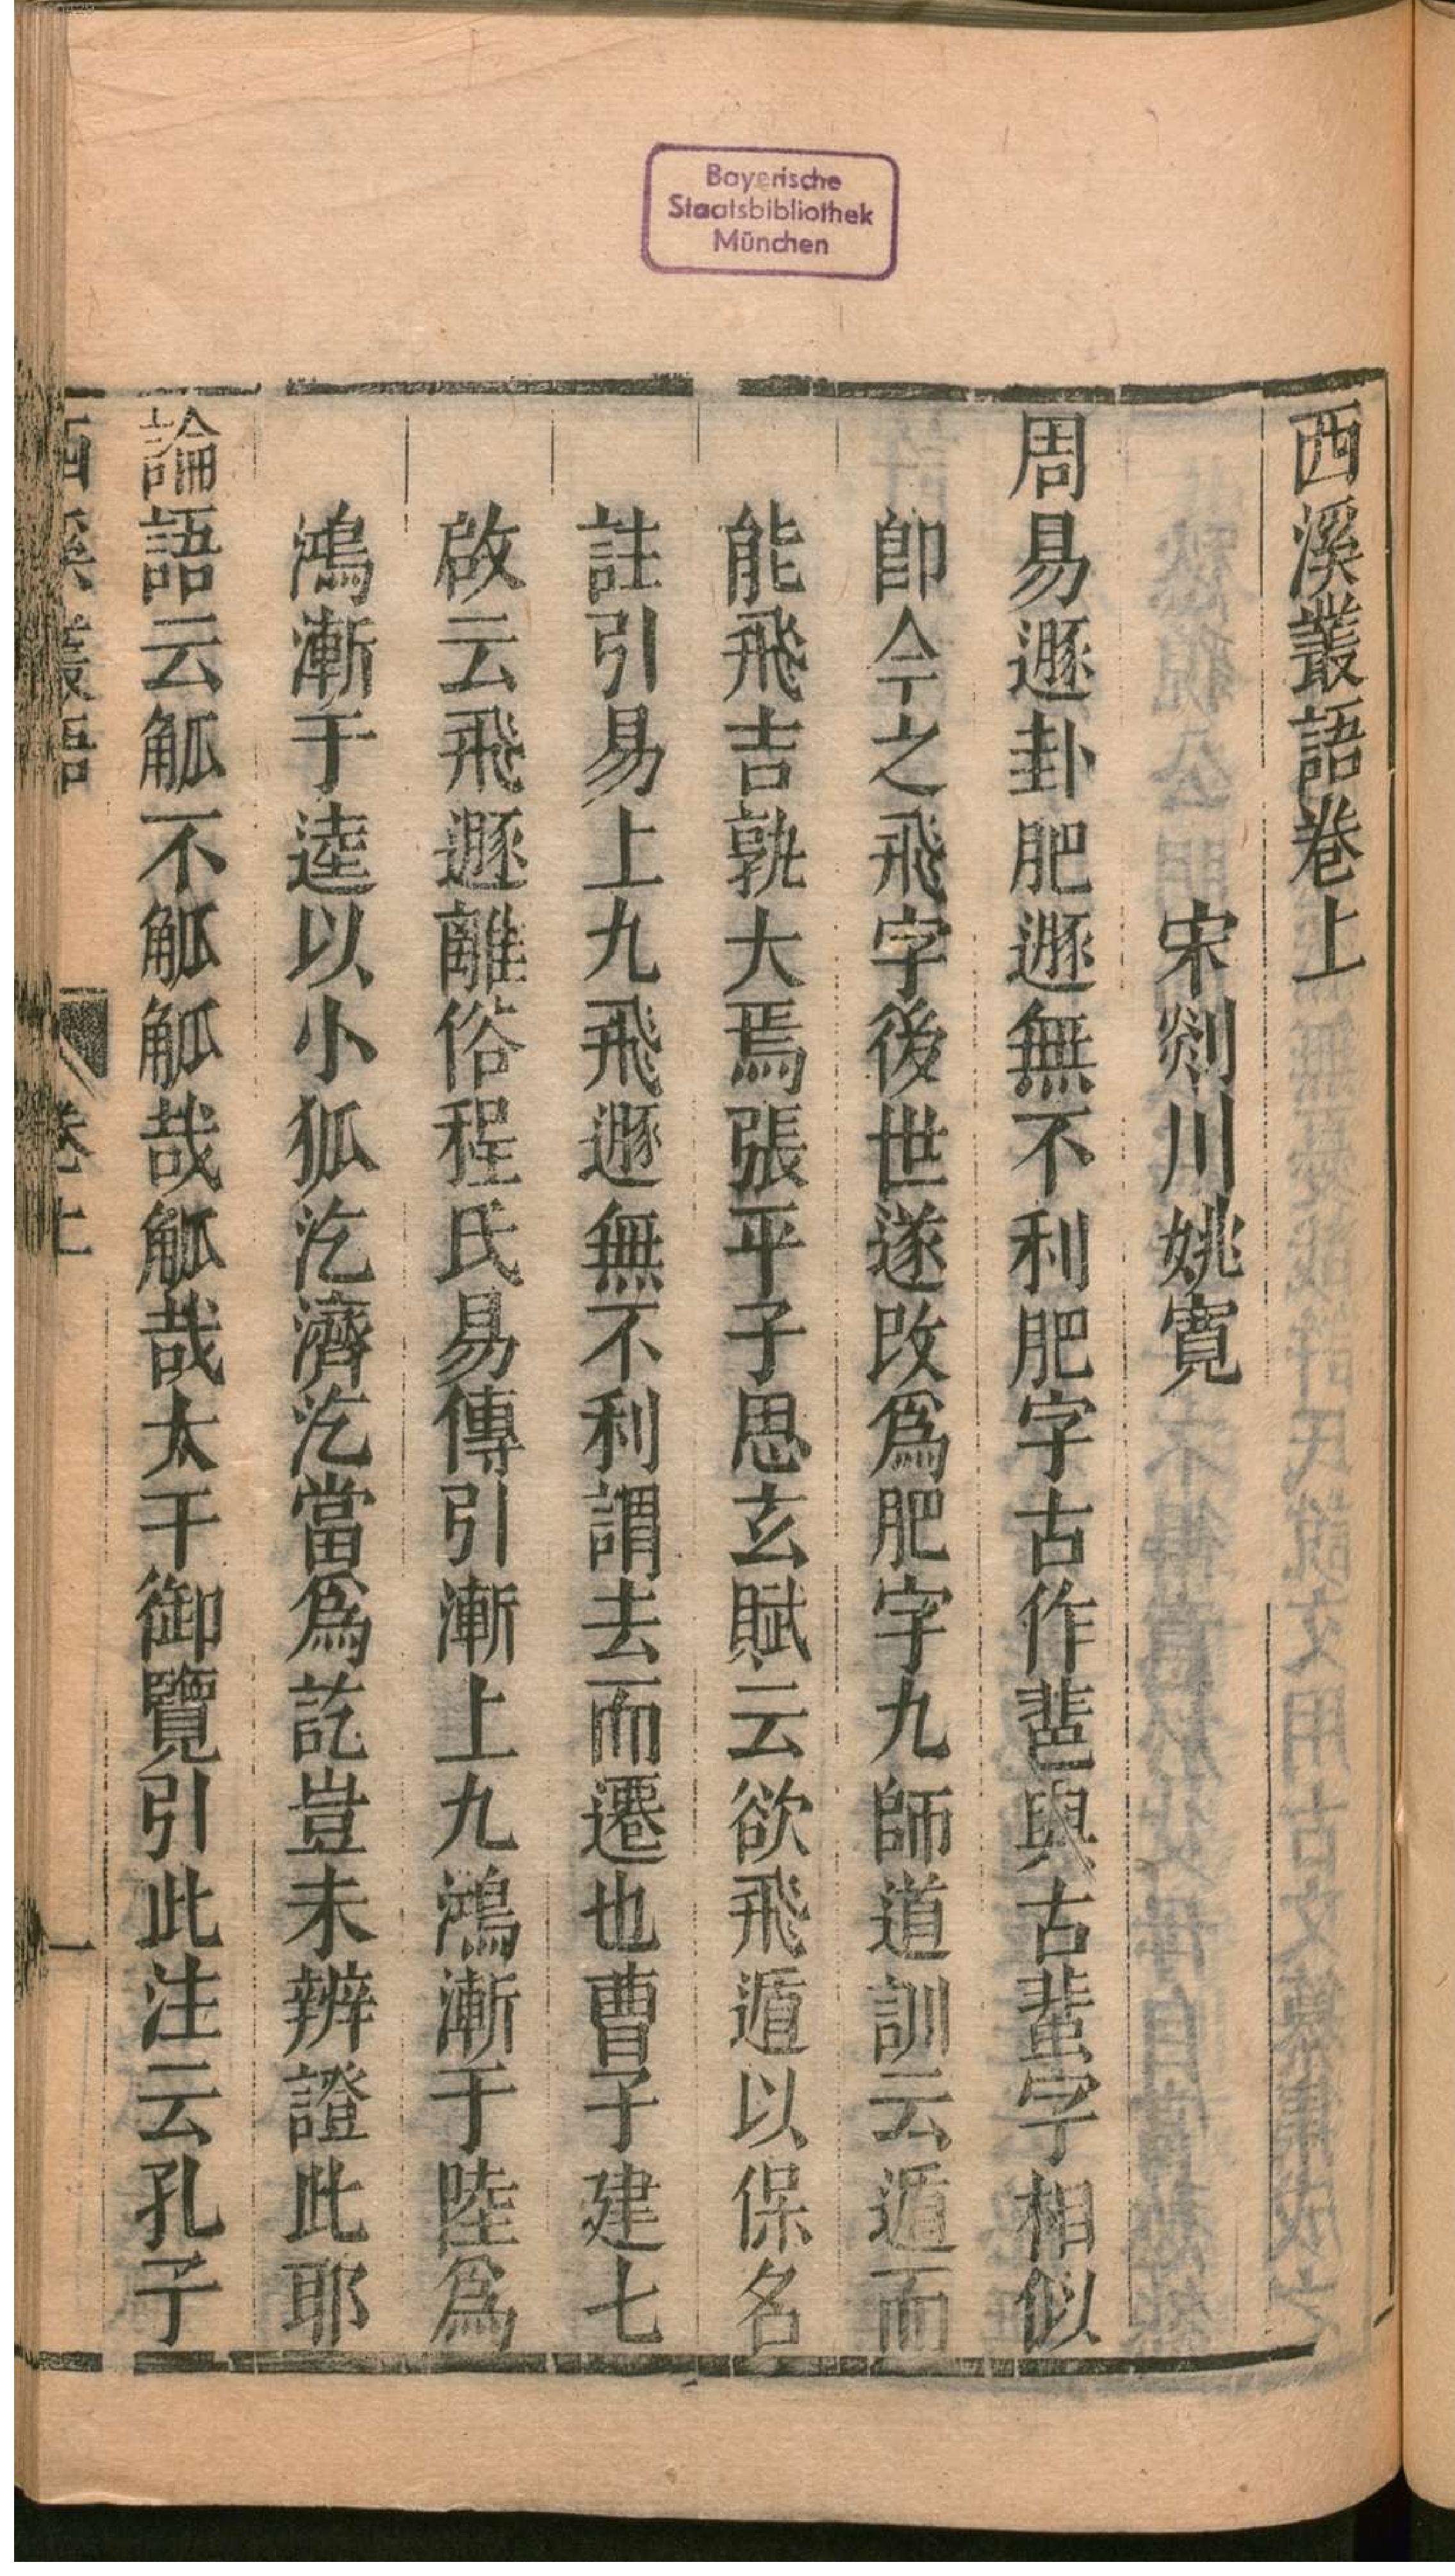 Bayerische
Staatsbibliothek
München
西溪叢語卷上
宋剡川姚寬
周易遯卦肥遯無不利肥字古作𦫎與古蜚字相似
卽今之飛字後世遂改爲肥字九師道訓云遁而
能飛吉孰大焉張平子思玄賦云欲飛遁以保名
註引易上九飛遯無不利謂去而遷也曹子建七
啟云飛遯離俗程氏易傳引漸上九鴻漸于陸爲
鴻漸于逵以小狐汔濟汔當爲訖豈未辨證此耶
論語云觚不觚觚哉觚哉太干御覽引此注云孔子
西溪叢語 卷上 一